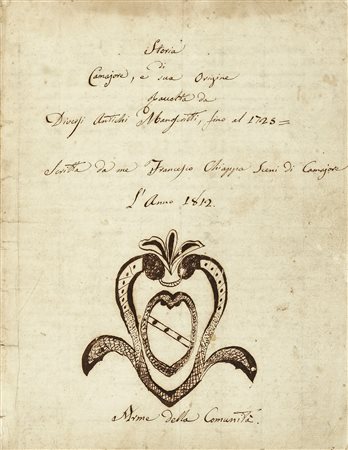 Storia
di
Camajore, e sua Origine
ricavatta da
Diversi Antichi Manoscritti, fino al 1723=
Scritta da me Francesco Chiappa Sceni di Camajore
L'Anno 1812.
Arme della Comunità.